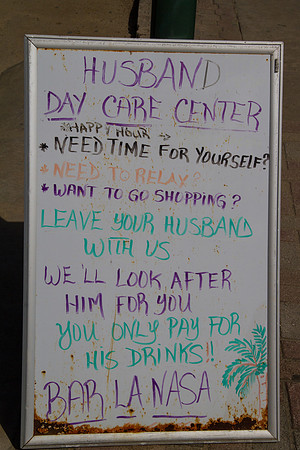 HUSBAND
DAY CARE CENTER
*HAPPY HOUR →
* NEED TIME FOR YOURSELF?
* NEED TO RELAX?
* WANT TO GO SHOPPING?
LEAVE YOUR HUSBAND
WITH US
WE'LL LOOK AFTER
HIM FOR YOU
YOU ONLY PAY FOR
HIS DRINKS!!
BAR LA NASA